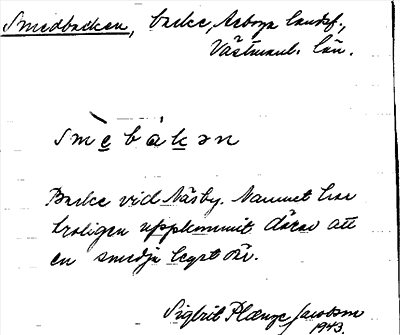 Smedbacken, backe, Arboga landsf.,
Västmanl. län.
smè̱báḵən
Backe vid Näsby. Namnet har
troligen uppkommit därav att
en smedja legat där.
Sigbrit Plænge Jacobson
1943.